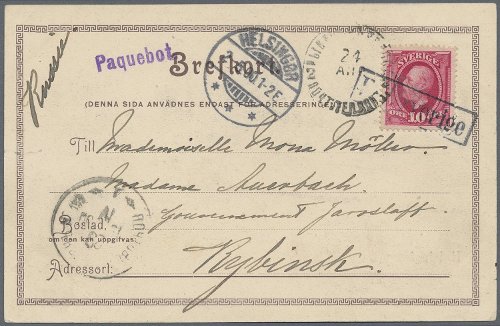 Russie
Paquebot
Brefkort.
HELSINGØR
1-2E
24
SVERIGE
10
ÖRE
(DENNA SIDA ANVÄDNES ENDAST FÖR ADRESSERING.)
Till Mademoiselle Mona Möller
Madame Auerbach
Gouvernement Jaroslaff
Bostad,
om den kan uppgifvas:
Rybinsk.
Adressort: